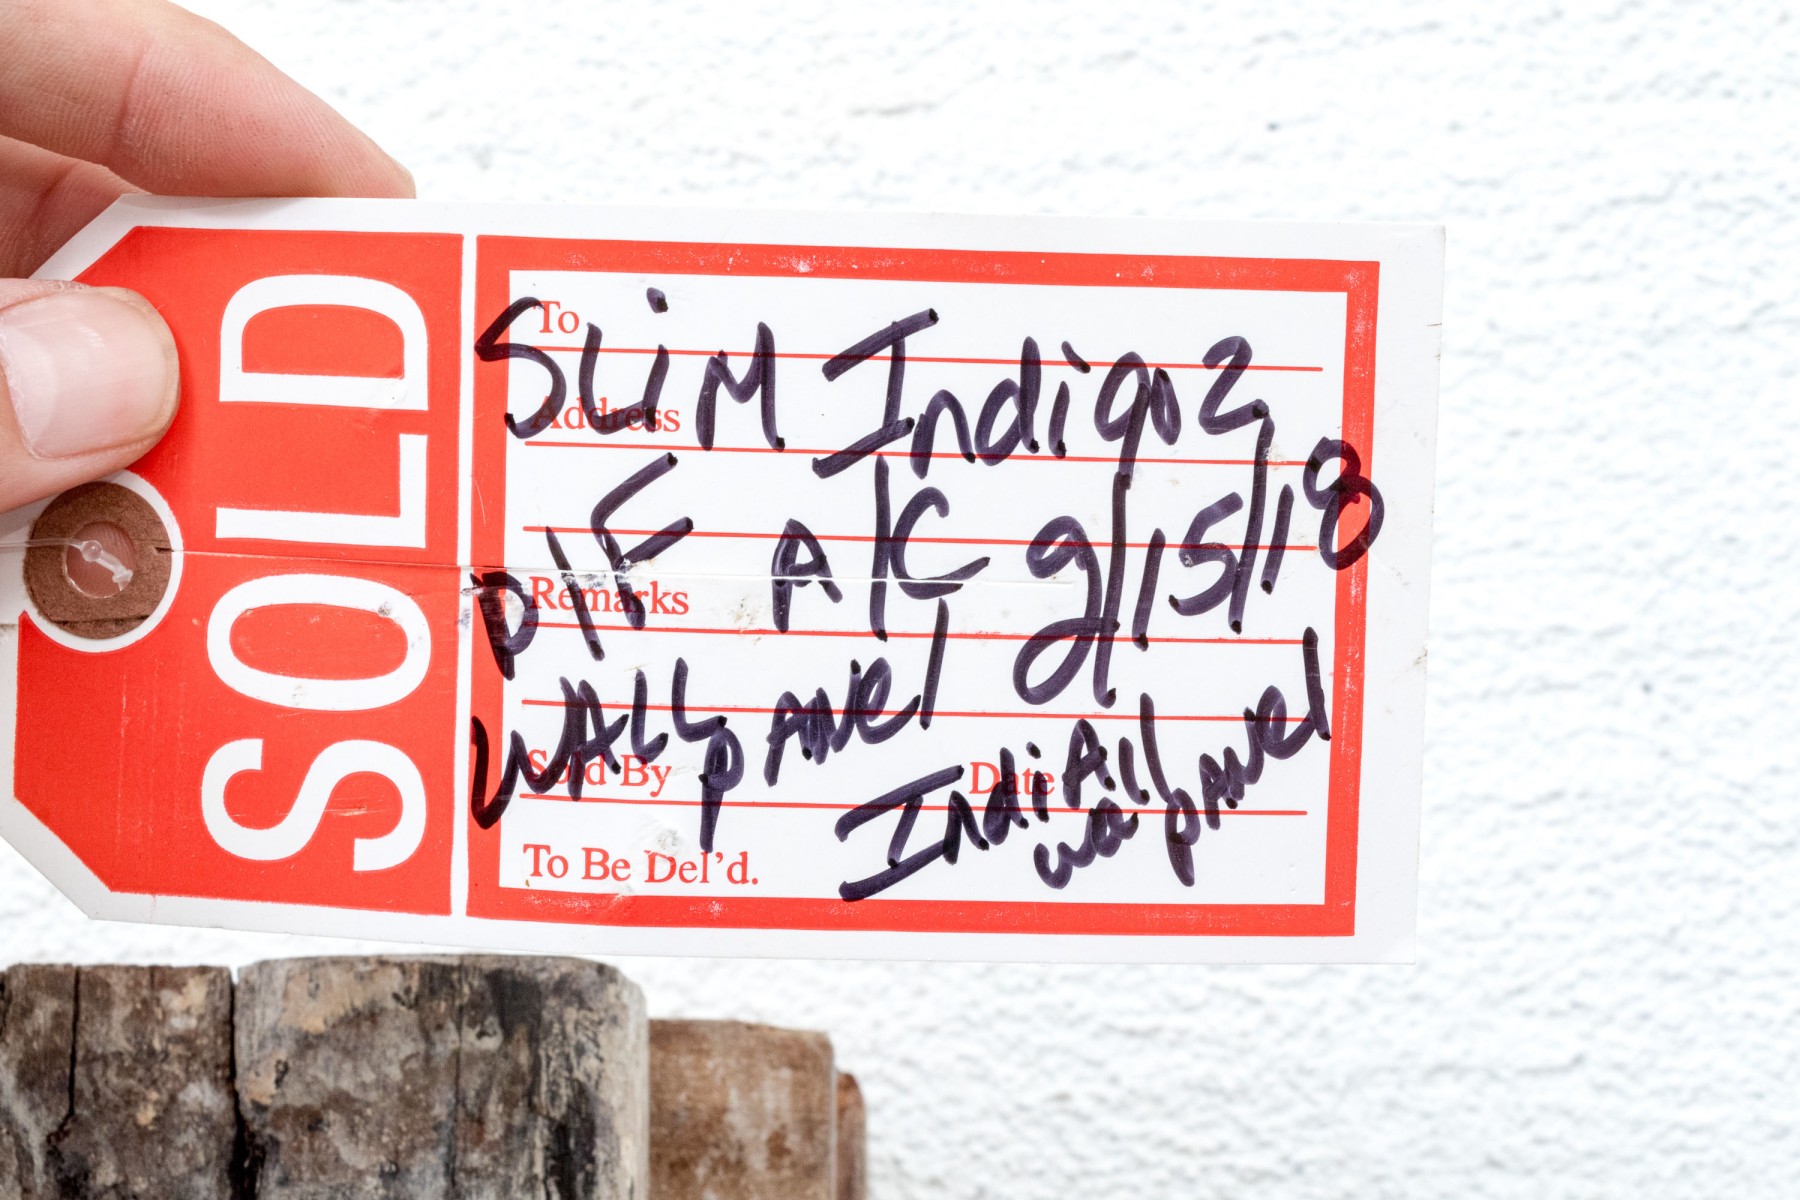 SOLD
To
SLiM Indigo 2
Address
P/F A/C 9/15/18
Remarks
WALL pANel
Sold By Date
IndiA wall pANel
To Be Del'd.